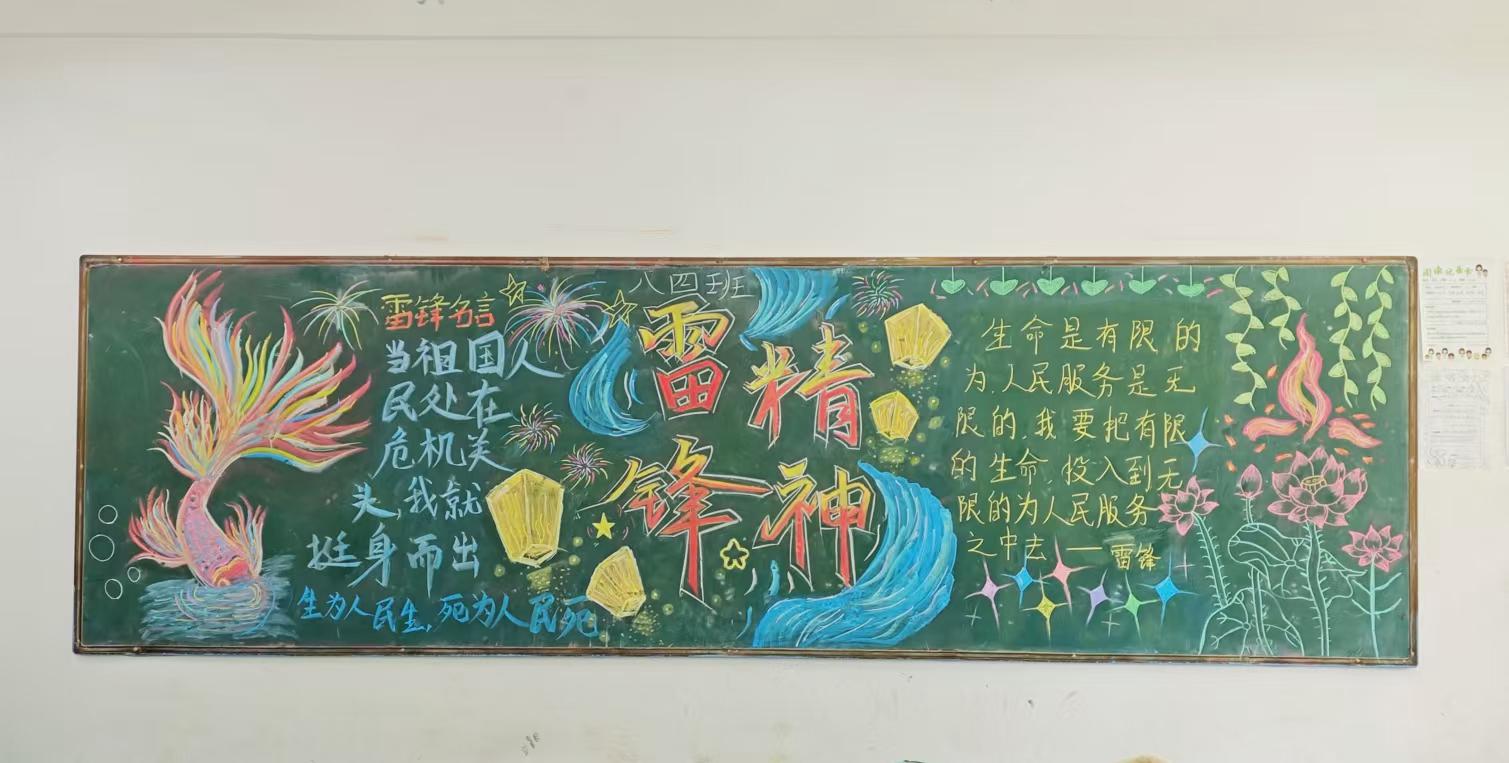 八四班
雷锋精神
雷锋名言
当祖国人
民处在
危机关
头,我就
挺身而出
生为人民生,死为人民死
生命是有限的
为人民服务是无
限的,我要把有限
的生命,投入到无
限的为人民服务
之中去——雷锋